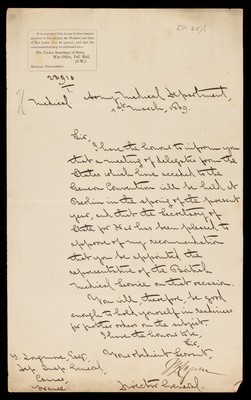 It is requested that in any further communication on this subject, the Number and Date of this Letter may be quoted; and that the communication may be addressed to—
The Under Secretary of State,
War Office, Pall Mall.
(S.W.)
Medical
Army Medical Department,
1st March, 1869.
Sir,
I have the honor to inform you
that a meeting of delegates from the
States which have acceded to the
Geneva Convention will be held at
Berlin in the spring of the present
year, and that the Secretary of
State for War has been pleased to
approve of my recommendation
that you be appointed the
representative of the British
Medical Service on that occasion.
You will, therefore, be good
enough to hold yourself in readiness
for further orders on the subject.
I have the honor to be,
Sir,
Your obedient Servant,
Director General.
T. Longmore, Esqr.
Dep. Insp. General,
Cannes,
France